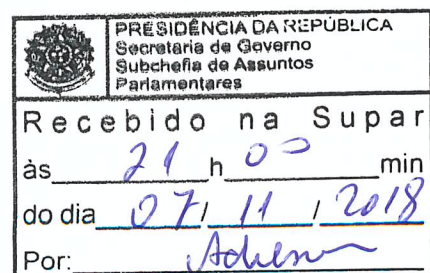 PRESIDÊNCIA DA REPÚBLICA
Secretaria de Governo
Subchefia de Assuntos
Parlamentares
Recebido na Supar
às 21 h 00 min
do dia 07 / 11 / 2018
Por: